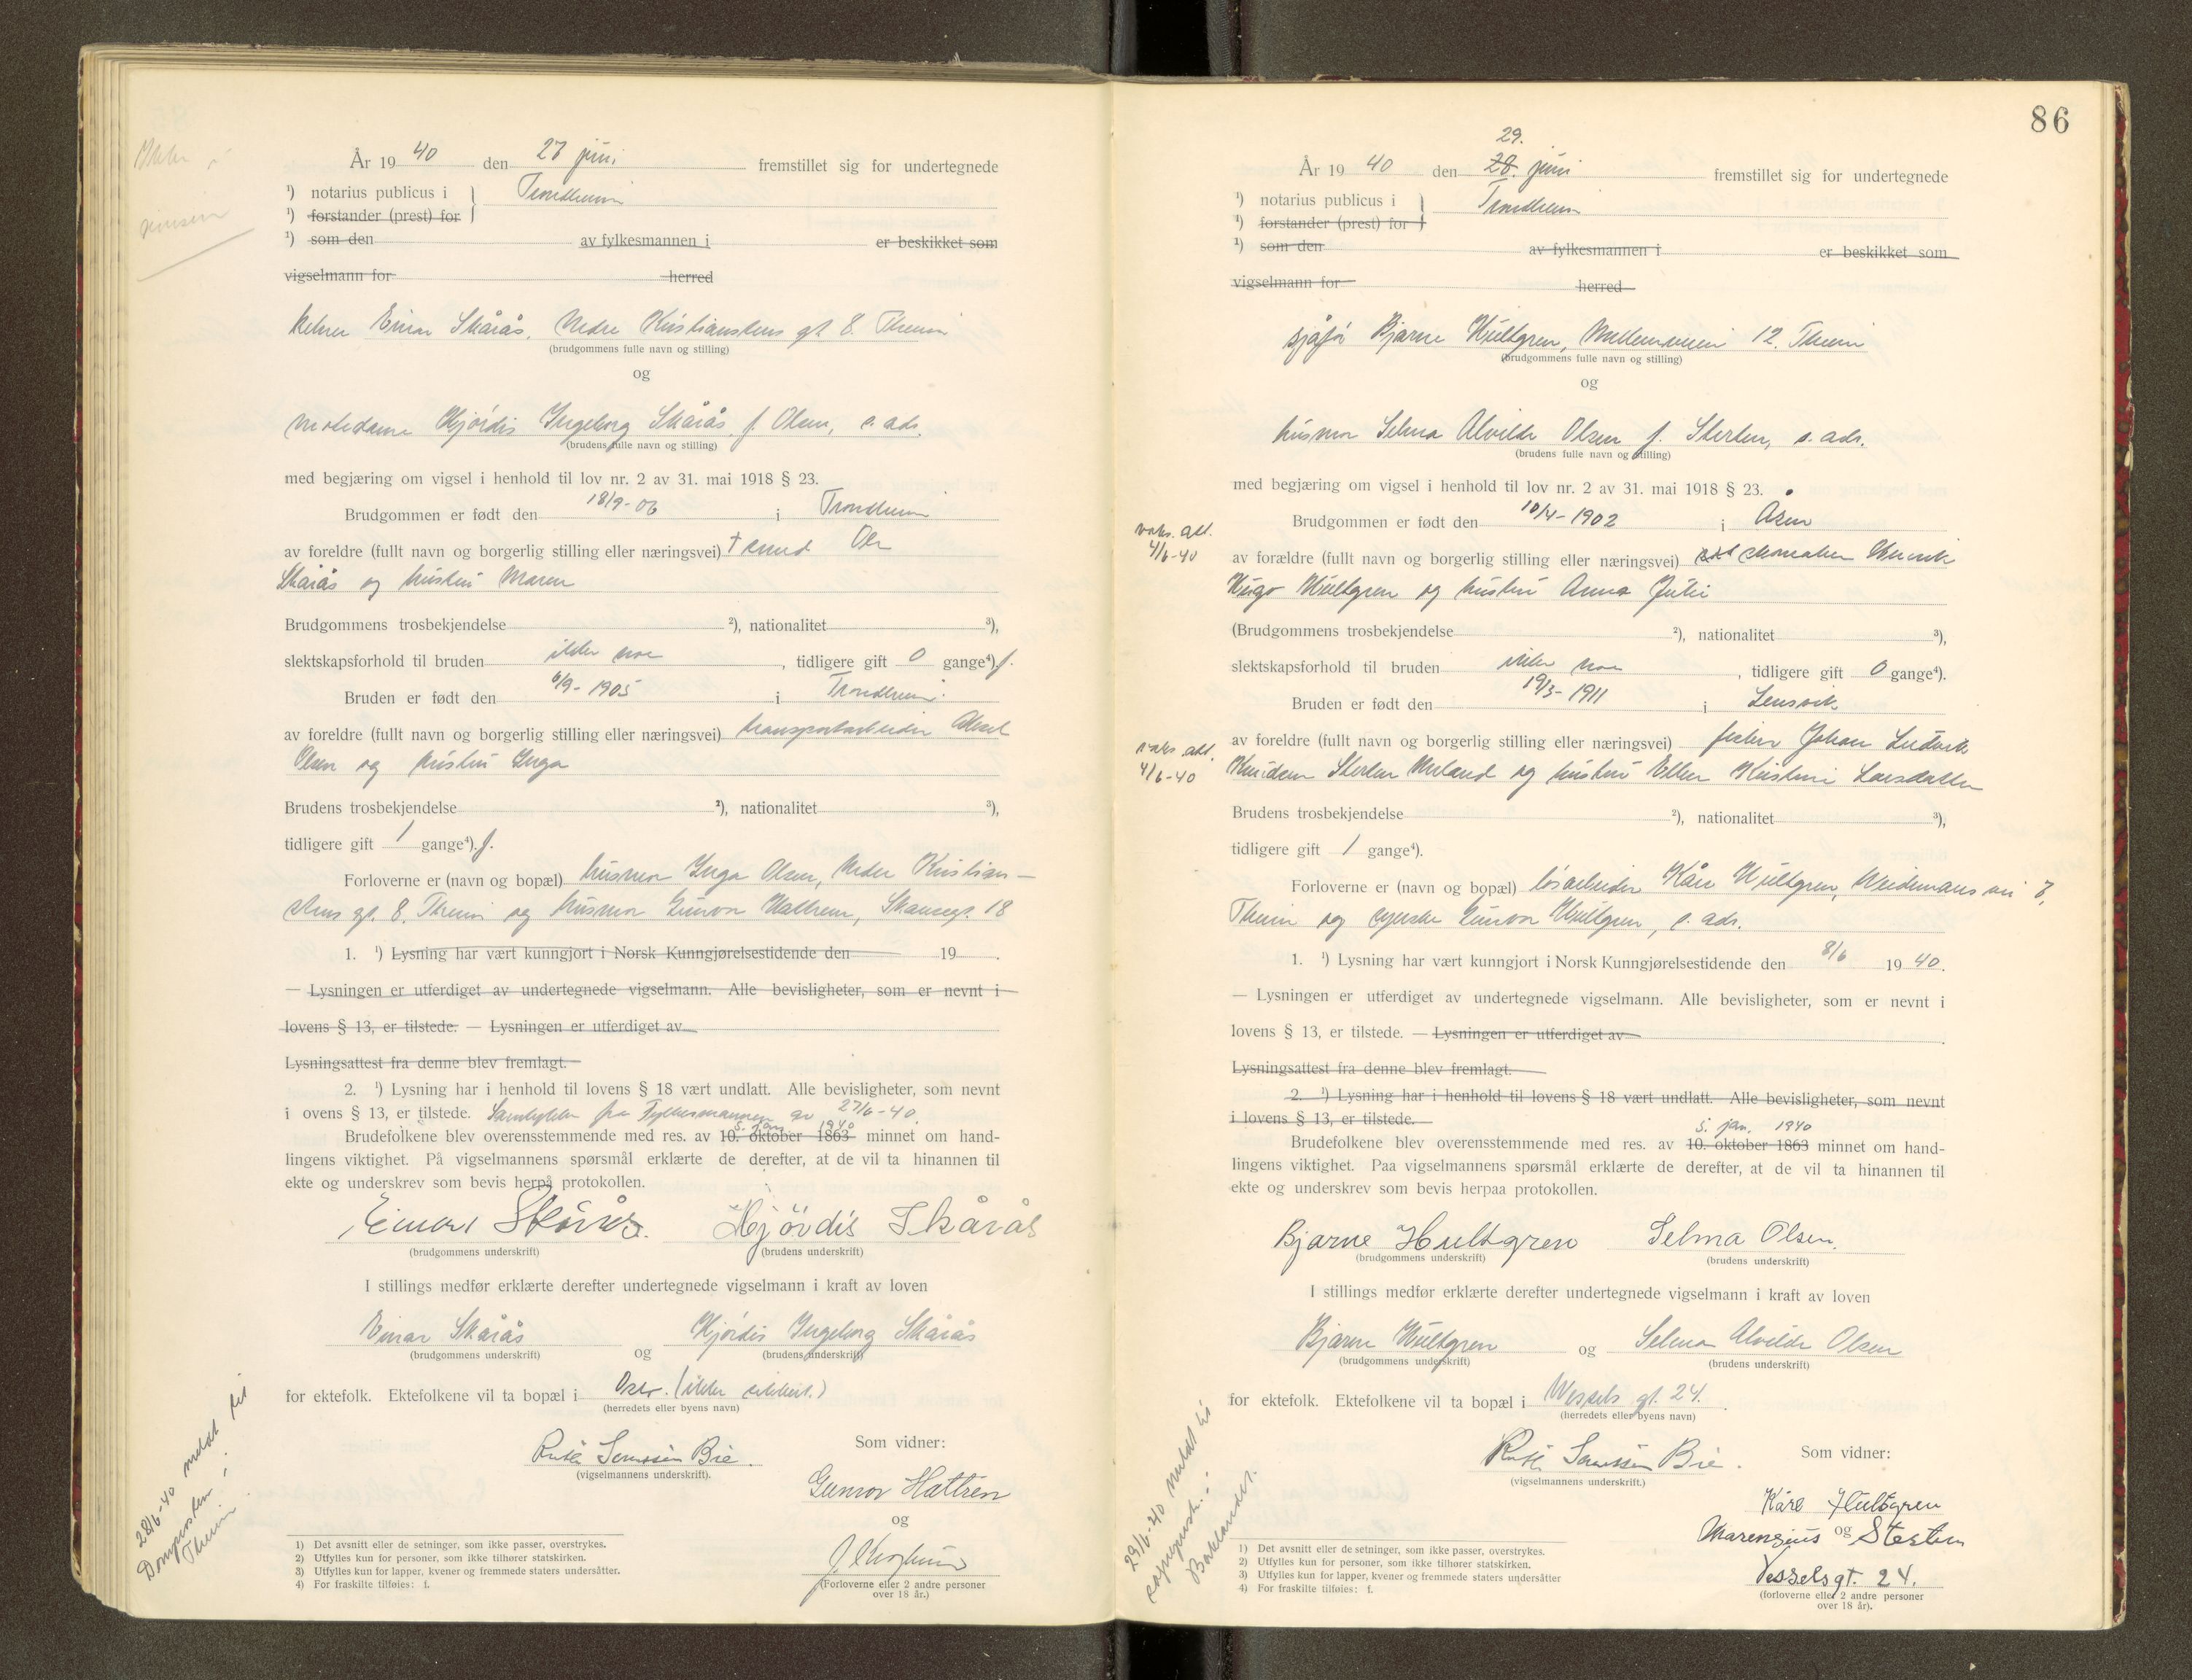 År 1940 den 27 juni fremstillet sig for undertegnede
¹) notarius publicus i } Trondheim
¹) forstander (prest) for
¹) som den av fylkesmannen i er beskikket som
vigselmann for herred
kelner Einar Skårås, Nedre Kristianstens gt 8 Theim
(brudgommens fulle navn og stilling)
og
motedame Hjördis Ingeborg Skårås f Olsen, s. ads.
(brudens fulle navn og stilling)
med begjæring om vigsel i henhold til lov nr. 2 av 31. mai 1918 § 23.
Brudgommen er født den 18/9-06 i Trondheim
av foreldre (fullt navn og borgerlig stilling eller næringsvei) † Ole
Skårås og hustru Maren
Brudgommens trosbekjendelse ²), nationalitet ³),
slektskapsforhold til bruden ikke noe, tidligere gift 0 gange⁴) f.
Bruden er født den 6/9-1905 i Trondheim.
av foreldre (fullt navn og borgerlig stilling eller næringsvei) transportarbeider Aksel
Olsen og hustru Inga
Brudens trosbekjendelse ²), nationalitet ³),
tidligere gift 1 gange⁴). f.
Forloverne er (navn og bopæl) husmor Inga Olsen, Nedre Kristian-
stens gt. 8, Theim og husmor Gunvor Hattrem, Skansegt. 18
1. ¹) Lysning har vært kunngjort i Norsk Kunngjørelsestidende den 19 .
— Lysningen er utferdiget av undertegnede vigselmann. Alle bevisligheter, som er nevnt i
lovens § 13, er tilstede. — Lysningen er utferdiget av
Lysningsattest fra denne blev fremlagt.
2. ¹) Lysning har i henhold til lovens § 18 vært undlatt. Alle bevisligheter, som nevnt
i ovens § 13, er tilstede. Samtykke fra Fylkesmannen av 27/6-40.
5. jan. 1940
Brudefolkene blev overensstemmende med res. av 10. oktober 1863 minnet om hand-
lingens viktighet. På vigselmannens spørsmål erklærte de derefter, at de vil ta hinannen til
ekte og underskrev som bevis herpå protokollen.
Einar Skårås. Hjördis Skårås
(brudgommens underskrift) (brudens underskrift)
I stillings medfør erklærte derefter undertegnede vigselmann i kraft av loven
Einar Skårås og Hjördis Ingeborg Skårås
(brudgommens underskrift) (brudens underskrift)
for ektefolk. Ektefolkene vil ta bopæl i Oslo. (ikke sikkert.)
(herredets eller byens navn)
Som vidner:
(vigselmannens underskrift).
Gunvor Hattrem
og
(Forloverne eller 2 andre personer
over 18 år.)
28/6-40 meldt til
Domprosten i
Theim.
1) Det avsnitt eller de setninger, som ikke passer, overstrykes.
2) Utfylles kun for personer, som ikke tilhører statskirken.
3) Utfylles kun for lapper, kvener og fremmede staters undersåtter.
4) For fraskilte tilføies: f.
86
29.
År 1940 den 28. juni fremstillet sig for undertegnede
¹) notarius publicus i } Trondheim
¹) forstander (prest) for
¹) som den av fylkesmannen i er beskikket som
vigselmann for herred
sjåfør Bjarne Hultgren, Mellemveien 12. Theim
(brudgommens fulle navn og stilling)
og
husmor Selma Alvilde Olsen f. Sterten, s. ads.
(brudens fulle navn og stilling)
med begjæring om vigsel i henhold til lov nr. 2 av 31. mai 1918 § 23.
Brudgommen er født den 10/4-1902 i Åsen
vaks. att.
4/6-40
av forældre (fullt navn og borgerlig stilling eller næringsvei) skomaker Henrik
Hugo Hultgren og hustru Anna Julie
(Brudgommens trosbekjendelse ²), nationalitet ³),
slektskapsforhold til bruden ikke noe, tidligere gift 0 gange⁴).
Bruden er født den 19/3-1911 i Lensvik
av foreldre (fullt navn og borgerlig stilling eller næringsvei) fisker Johan Ludvik
vaks. att.
4/6-40
Knudsen Sterten og hustru Ellen Kristine Larsdatter
Brudens trosbekjendelse ²), nationalitet ³),
tidligere gift 1 gange⁴).
Forloverne er (navn og bopæl) løsarbeider Kåre Hultgren, Weidemans vei
Theim og syerske Gunvor Hultgren, s. ads.
1. ¹) Lysning har vært kunngjort i Norsk Kunngjørelsestidende den 8/6 1940.
— Lysningen er utferdiget av undertegnede vigselmann. Alle bevisligheter, som er nevnt i
lovens § 13, er tilstede. — Lysningen er utferdiget av .
Lysningsattest fra denne blev fremlagt.
2. ¹) Lysning har i henhold til lovens § 18 vært undlatt. Alle bevisligheter, som nevnt
i lovens § 13, er tilstede.
5. jan. 1940
Brudefolkene blev overensstemmende med res. av 10. oktober 1863 minnet om hand-
lingens viktighet. Paa vigselmannens spørsmål erklærte de derefter, at de vil ta hinannen til
ekte og underskrev som bevis herpaa protokollen.
Bjarne Hultgren Selma Olsen.
(brudgommens underskrift) (brudens underskrift)
I stillings medfør erklærte derefter undertegnede vigselmann i kraft av loven
Bjarne Hultgren og Selma Alvilde Olsen
(brudgommens underskrift) (brudens underskrift)
for ektefolk. Ektefolkene vil ta bopæl i Wessels gt. 24.
(herredets eller byens navn)
Som vidner:
(vigselmannens underskrift.)
Kåre Hultgren
Marengius og Sterten
Vesselsgt. 24.
(forloverne eller 2 andre personer
over 18 år).
29/6-40 meldt til
sogneprest. i
Baklandet.
1) Det avsnitt eller de setninger, som ikke passer, overstrykes.
2) Utfylles kun for personer, som ikke tilhører statskirken.
3) Utfylles kun for lapper, kvener og fremmede staters undersåtter
4) For fraskilte tilføies: f.